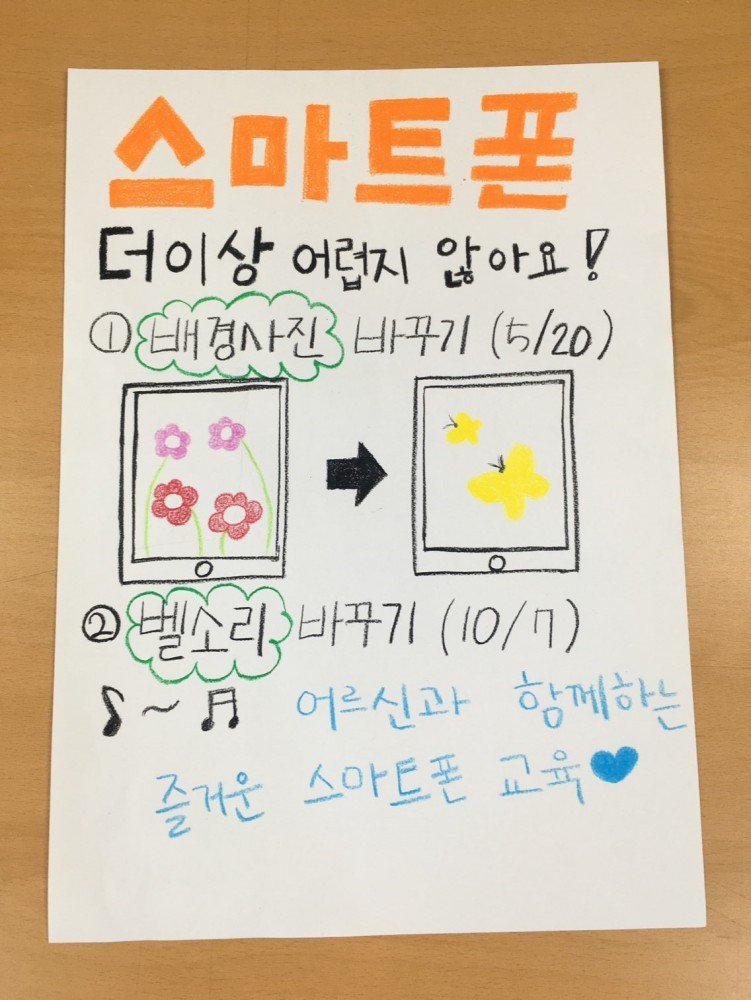 스마트폰
더이상 어렵지 않아요!
① 배경사진 바꾸기 (5/20)
② 벨소리 바꾸기 (10/7)
어르신과 함께하는
즐거운 스마트폰 교육